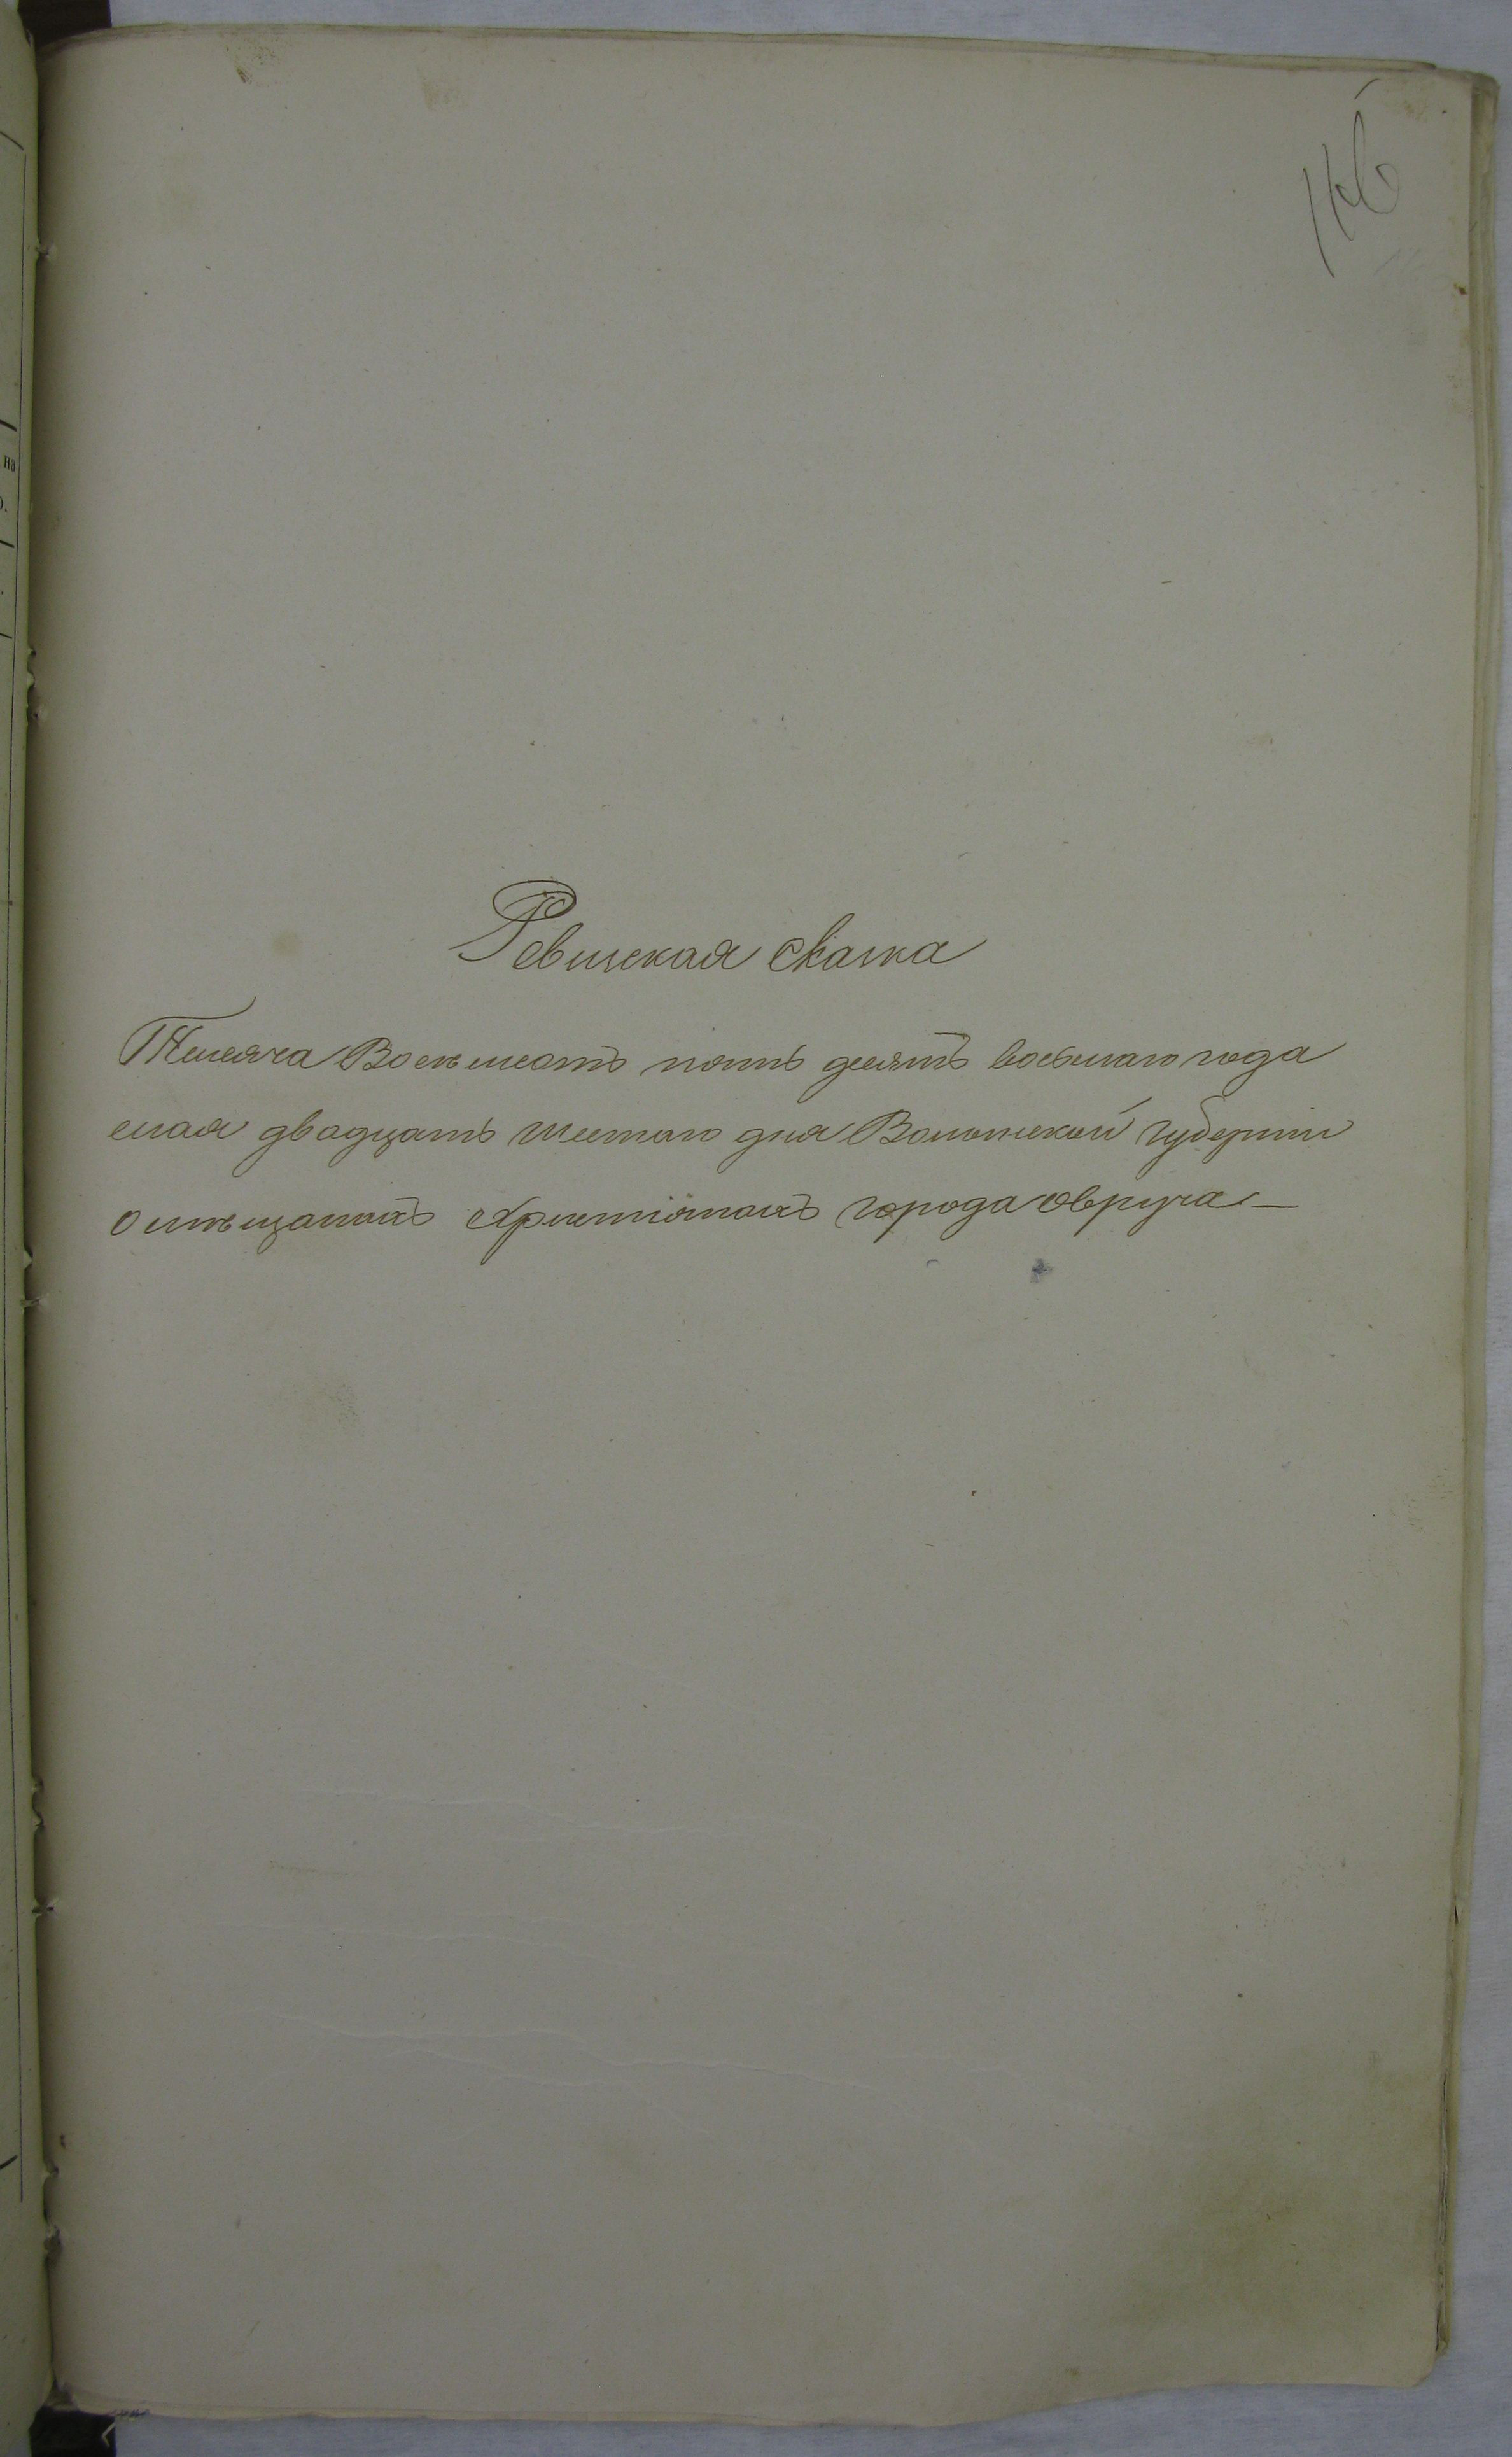 Ревизская сказка
Тысяча Восемьсотъ пять десятъ восьмаго года
мая двадцать шестаго дня Волынской губерніи
о мѣщанахъ христіянахъ города Овруча